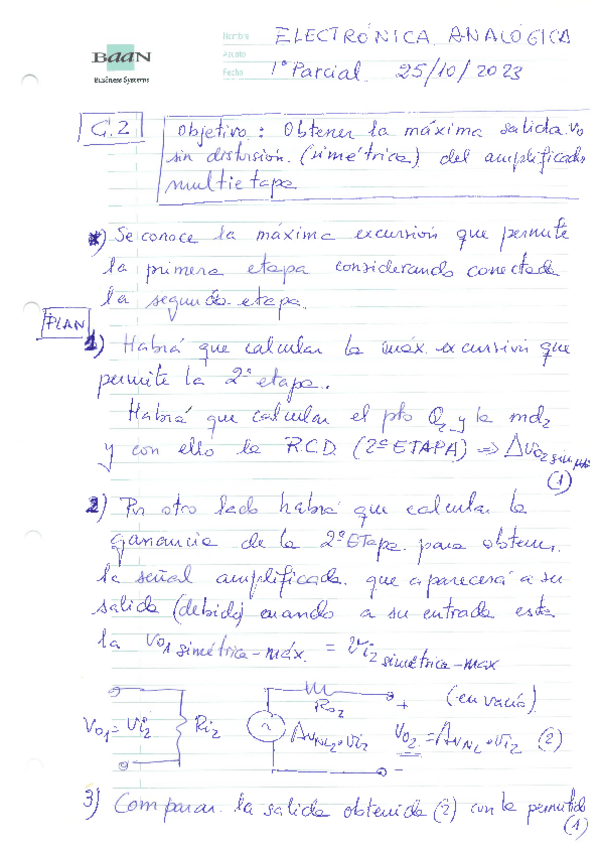 BaaN
Business Systems
Nombre
Asunto
Fecha
ELECTRÓNICA ANALÓGICA
1º Parcial 25/10/2023
C.2
Objetivo : Obtener la máxima salida vo
sin distorsión (simétrica) del amplificador
multietapa
*) Se conoce la máxima excursión que permite
la primera etapa considerando conectada
la segunda etapa.
PLAN
1) Habrá que calcular la máx. excursión que
permite la 2ª etapa.
Habrá que calcular el pto Q2 y la md2
y con ello la R.C.D. (2ª ETAPA) ⇒ Δvo2 simét
(1)
2) Por otro lado habrá que calcular la
ganancia de la 2ª Etapa para obtener
la señal amplificada que aparecerá a su
salida (debida) cuando a su entrada esté
la vo1 simétrica-máx. = vi2 simétrica-max
Vo1 = Vi2 Ri2 Ro2 AvNL2·vi2 + (en vacío)
Vo2 = AvNL2·vi2 (2)
-
3) Comparar la salida obtenida (2) con la permitida
(1)